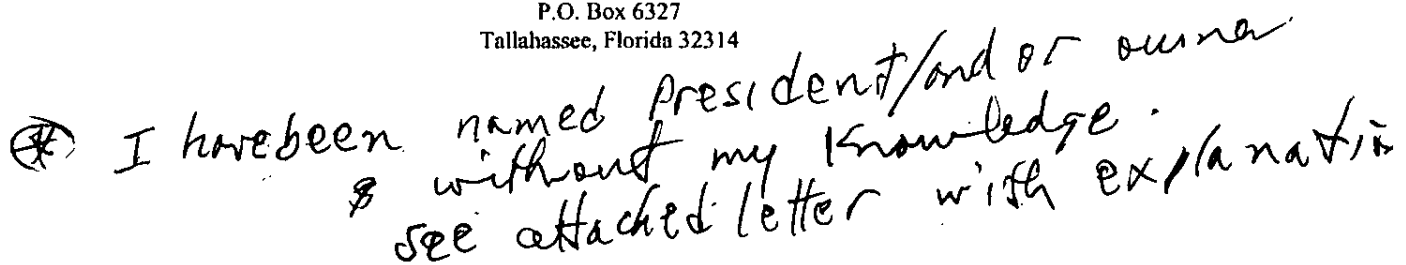 P.O. Box 6327
Tallahassee, Florida 32314
I have been named President/and or owner
without my knowledge.
see attached letter with explanation